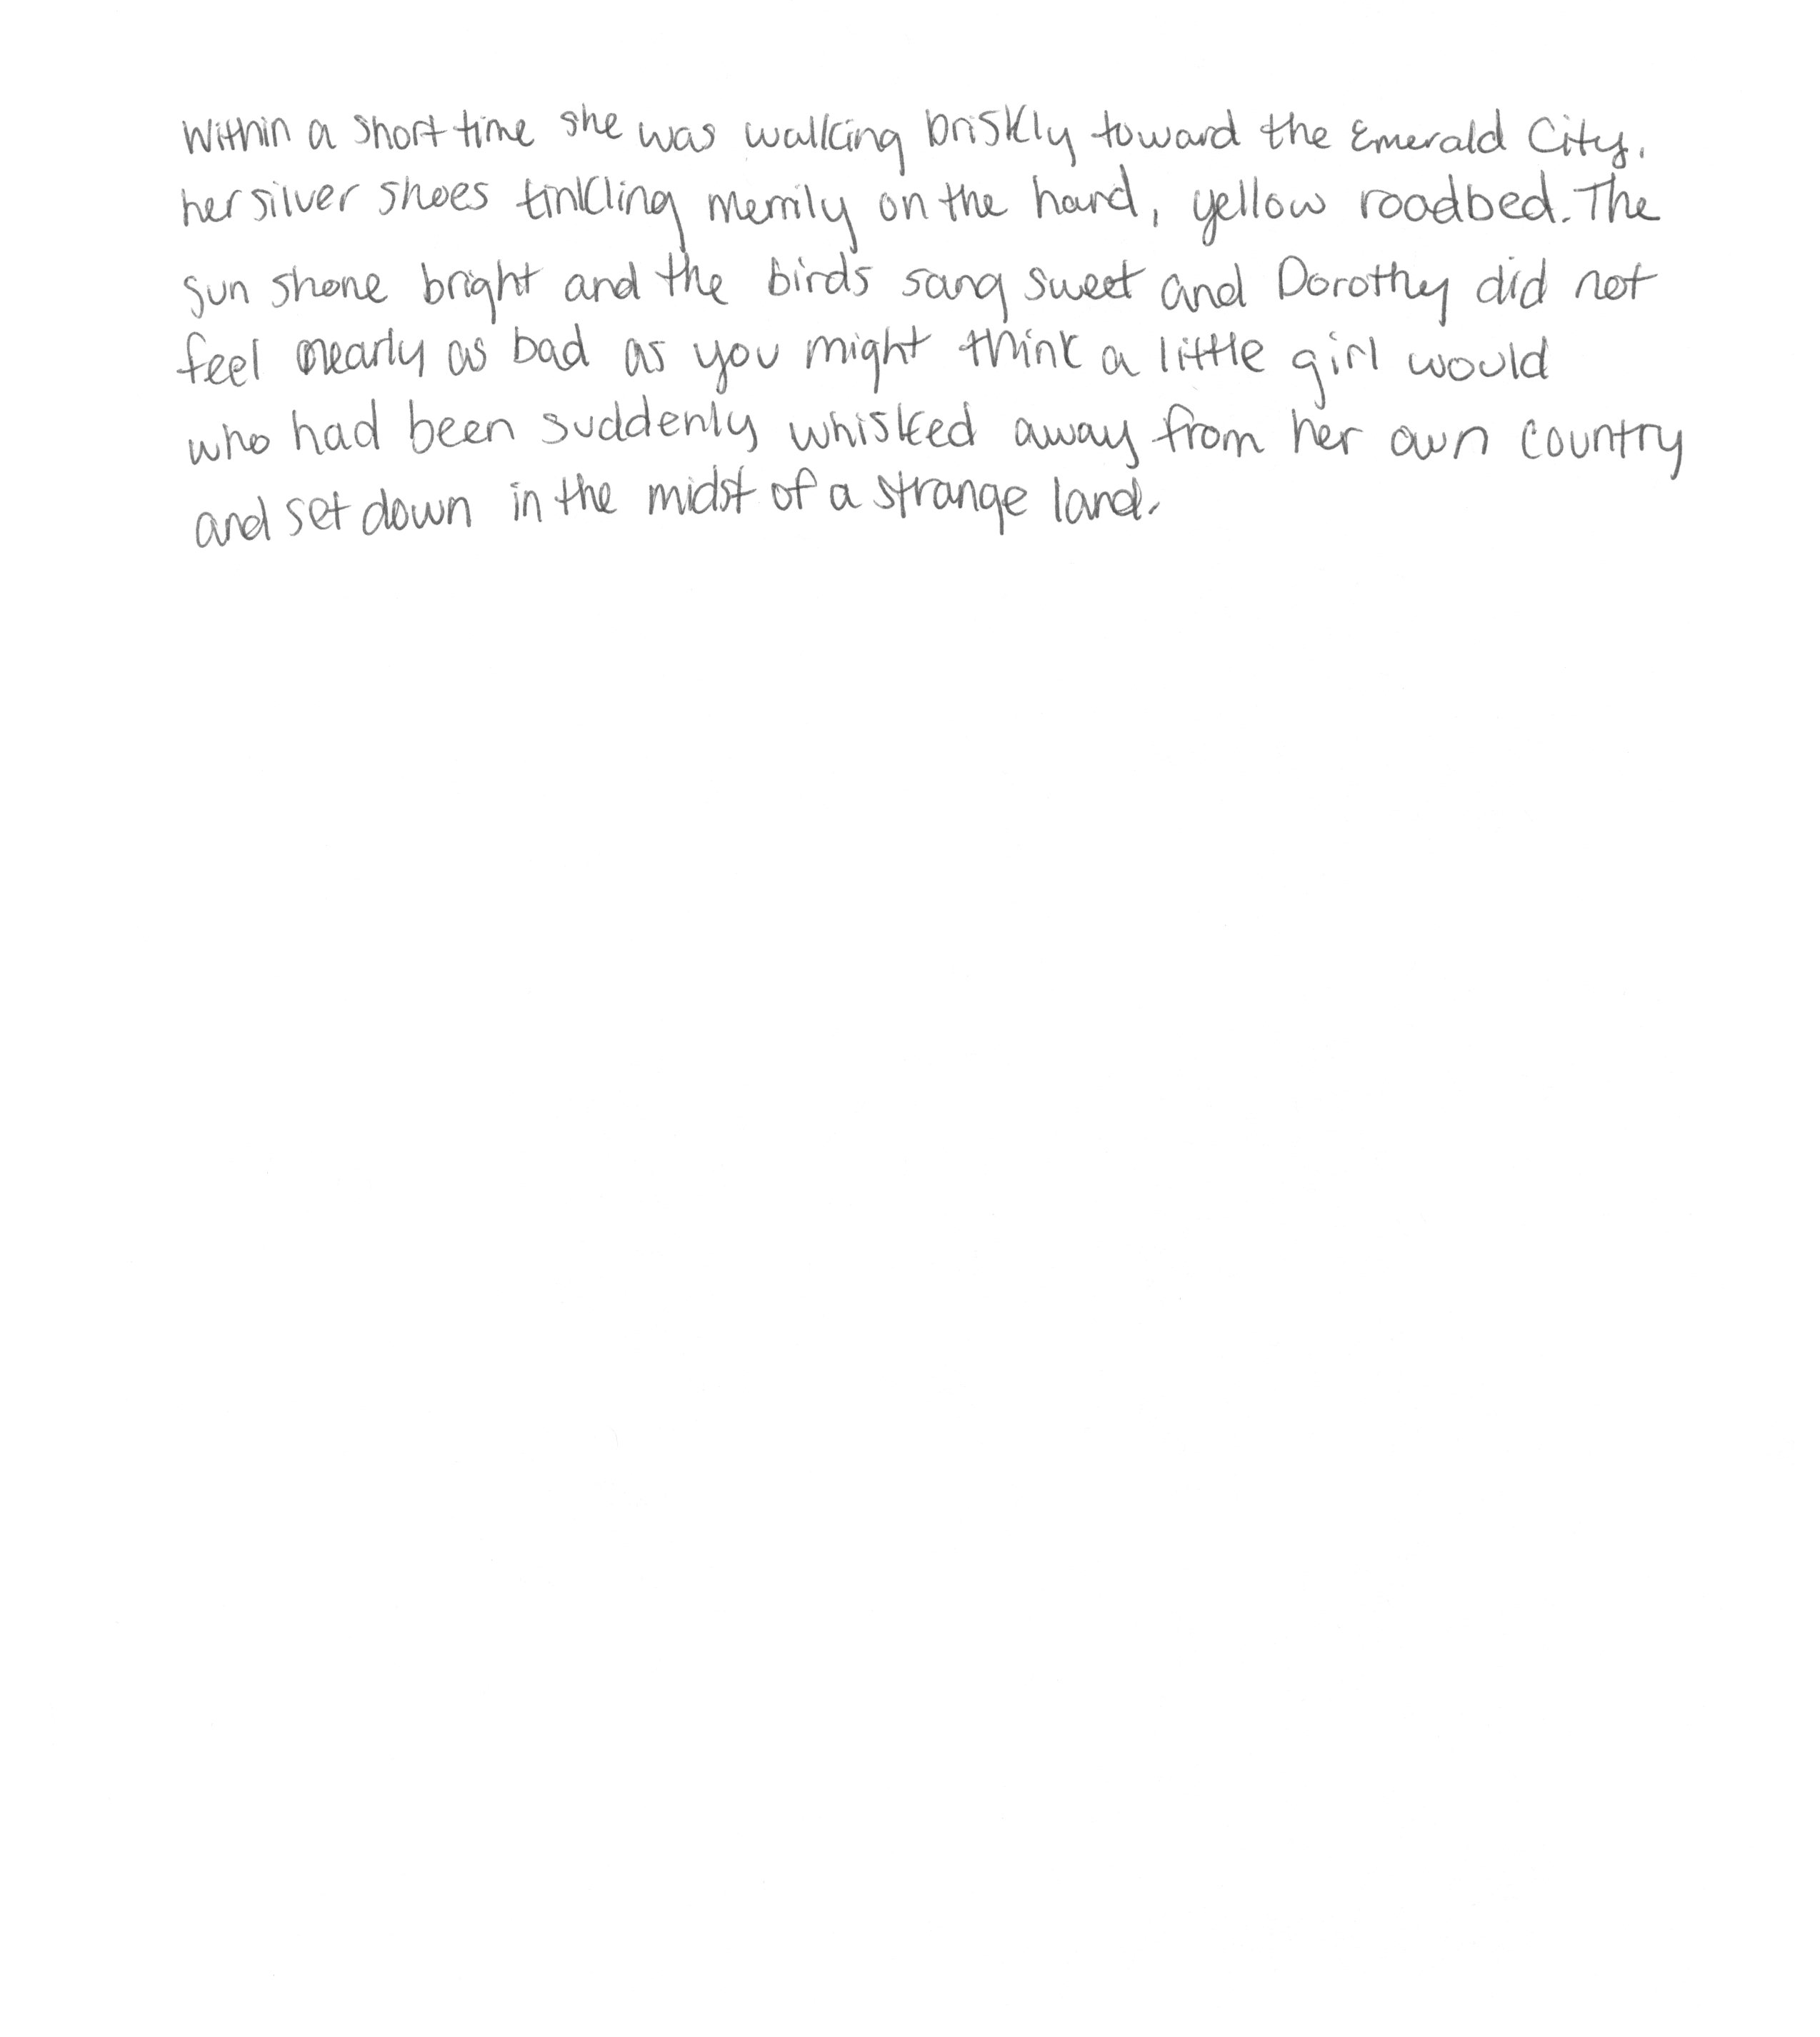 Within a short time she was walking briskly toward the Emerald City,
her silver shoes tinkling merrily on the hard, yellow roadbed. The
sun shone bright and the birds sang sweet and Dorothy did not
feel nearly as bad as you might think a little girl would
who had been suddenly whisked away from her own country
and set down in the midst of a strange land.